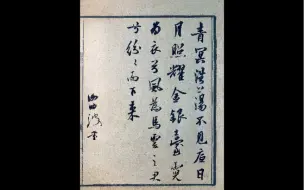 青冥浩蕩不见底日
月照耀金銀臺霓
為衣兮風為馬雲之君
兮紛々而下来